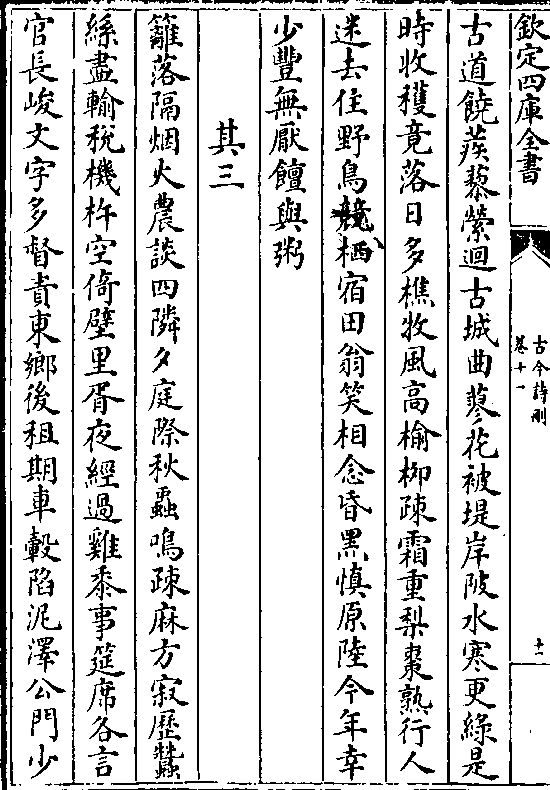 欽定四庫全書
古今詩刪
卷十一
十一
古道饒蒺藜縈迴古城曲蓼花被堤岸陂水寒更緑是
時收穫竟落日多樵牧風高榆栁踈霜重梨棗熟行人
迷去住野鳥競栖宿田翁笑相念昏黑慎原陸今年幸
少豐無厭饘與粥
其三
籬落隔烟火農談四隣夕庭際秋蟲鳴踈麻方寂歴蠶
絲盡輸稅機杼空倚壁里胥夜經過雞黍事筵席各言
官長峻文字多督責東鄉後租期車轂陷泥澤公門少